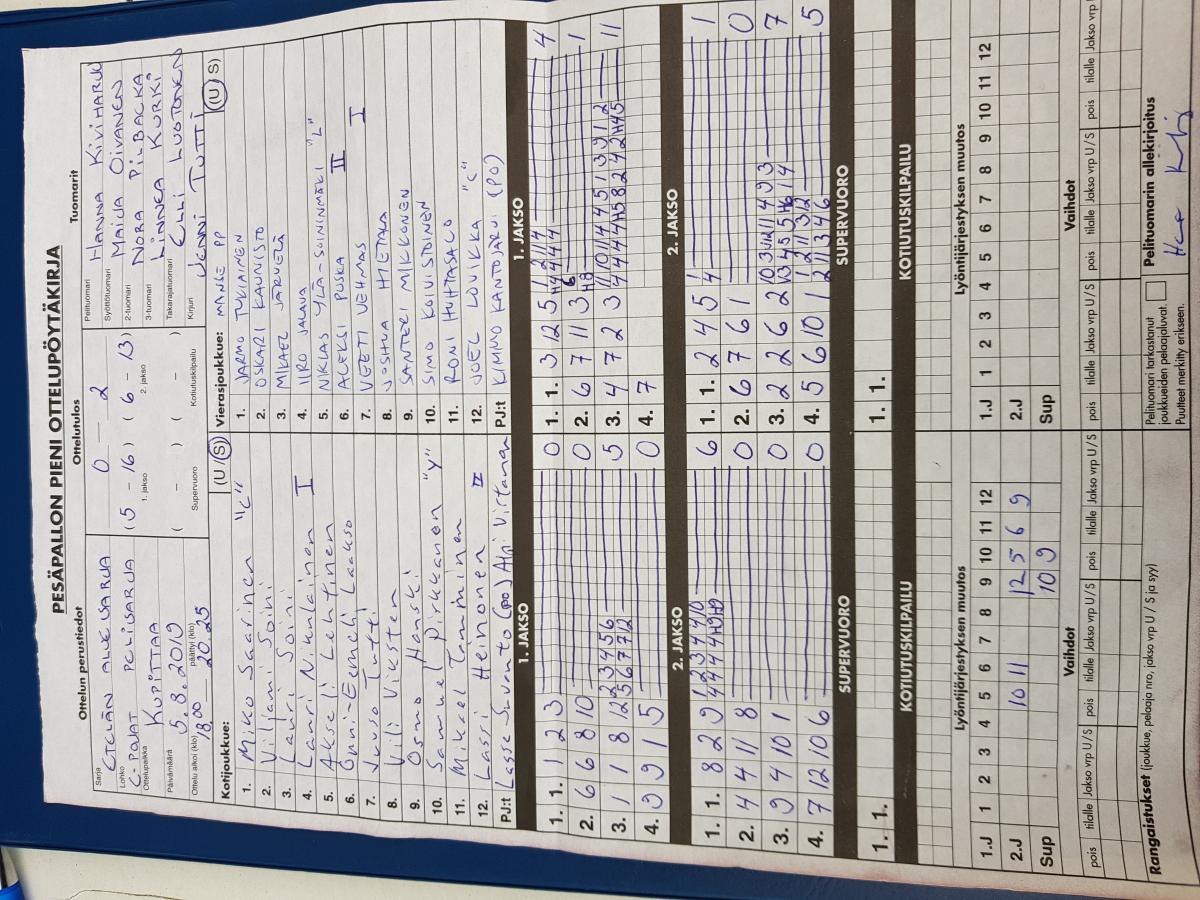 PESÄPALLON PIENI OTTELUPÖYTÄKIRJA
Ottelun perustiedot Ottelutulos Tuomarit
Sarja ETELÄN ALUESARJA
Lohko C-POJAT PERUSSARJA
Ottelupaikka KUPITTAA
Päivämäärä 5.8.2019
Ottelu alkoi (klo) 18.00 päättyi (klo) 20.25
0 - 2
(5 - 16) (6 - 13)
1. jakso 2. jakso
( - ) ( - )
Supervuoro Kotiutuskilpailu
Pelituomari HANNA KIVIHARJU
Syöttötuomari MAIJA OIVANEN
2-tuomari NORA PILBACKA
3-tuomari LINNEA KURIKI
Takarajatuomari ELLI LUOTONEN
Kirjuri JENNI TUTTI
Kotijoukkue: (U / S)
1. Miko Saarinen "C"
2. Viljami Soini
3. Lauri Soini
4. Lauri Nikunlainen I
5. Akseli Lehtinen
6. Onni-Eemeli Laakso
7. Juuso Tutti
8. Vili Viksten
9. Osmo Hanski
10. Samuel Pirkkanen "Y"
11. Mikael Tamminen
12. Lassi Heinonen II
PJ:t Lasse Suvanto (PO) Alpi Virtanen
Vierasjoukkue: MANSE PP (U / S)
1. JARMO TUKIAINEN
2. OSKARI KAUNISTO
3. MIKAEL JÄRVELÄ
4. IIRO JALAVA
5. NIKLAS YLÄ-SOININMÄKI "L"
6. ALEKSI PUSKA II
7. VEETI VEHMAS I
8. JOSHUA HIETALA
9. SANTERI MIKKONEN
10. SIMO KOIVUSTOINEN
11. RONI HUHTASALO
12. JOEL LOVIKKA "C"
PJ:t KIMMO KANTOJÄRVI (PO)
1. JAKSO 1. JAKSO
1. 1. 1 2 3 0
2. 6 6 8 10 0
3. 1 1 8 12 2 3 4 5 6 5
5 6 7 7 12
4. 9 9 1 5 0
1. 1. 3 12 5 1 2 11 4 4
H4 4 4 4
2. 6 7 11 3 6 1
H8
3. 4 7 2 3 1 10 11 4 5 1 3 9 1 2 11
4 4 4 4 H5 8 2 4 2 H4 5
4. 7 0
2. JAKSO 2. JAKSO
1. 1. 8 2 9 1 2 3 4 4 10 6
4 4 4 4 H9 H9
2. 4 4 11 8 0
3. 9 4 10 1 0
4. 7 12 10 6 0
1. 1. 2 4 5 1 1
4
2. 6 7 6 1 0
3. 2 2 6 2 10 3 12 11 4 9 3 7
4. 5 6 10 1 1 2 11 3 12 5
2 11 3 4 6
SUPERVUORO SUPERVUORO
1. 1. 1. 1.
KOTIUTUSKILPAILU KOTIUTUSKILPAILU
Lyöntijärjestyksen muutos Lyöntijärjestyksen muutos
1.J 1 2 3 4 5 6 7 8 9 10 11 12
2.J 10 11 12 5 6 9
Sup 10 9
1.J 1 2 3 4 5 6 7 8 9 10 11 12
2.J
Sup
Vaihdot Vaihdot
pois tilalle Jakso vrp U / S pois tilalle Jakso vrp U / S pois tilalle Jakso vrp U / S pois tilalle Jakso vrp U / S pois tilalle Jakso vrp U / S pois tilalle Jakso vrp
Rangaistukset (joukkue, pelaaja nro, jakso vrp U / S ja syy)
Pelituomari tarkastanut
joukkueiden pelaajaluvat.
Puutteet merkitty erikseen.
Pelituomarin allekirjoitus